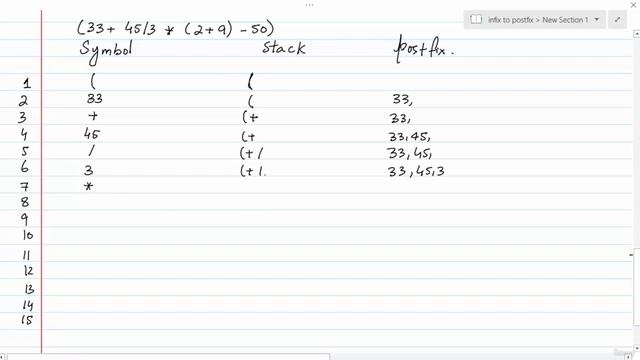 infix to postfix > New Section 1
(33+ 45/3 * (2+9) -50)
Symbol Stack postfix.
1 ( (
2 33 ( 33,
3 + (+ 33,
4 45 (+ 33,45,
5 / (+ / 33,45,
6 3 (+ /. 33,45,3
7 *
8
9
10
11
12
13
14
15